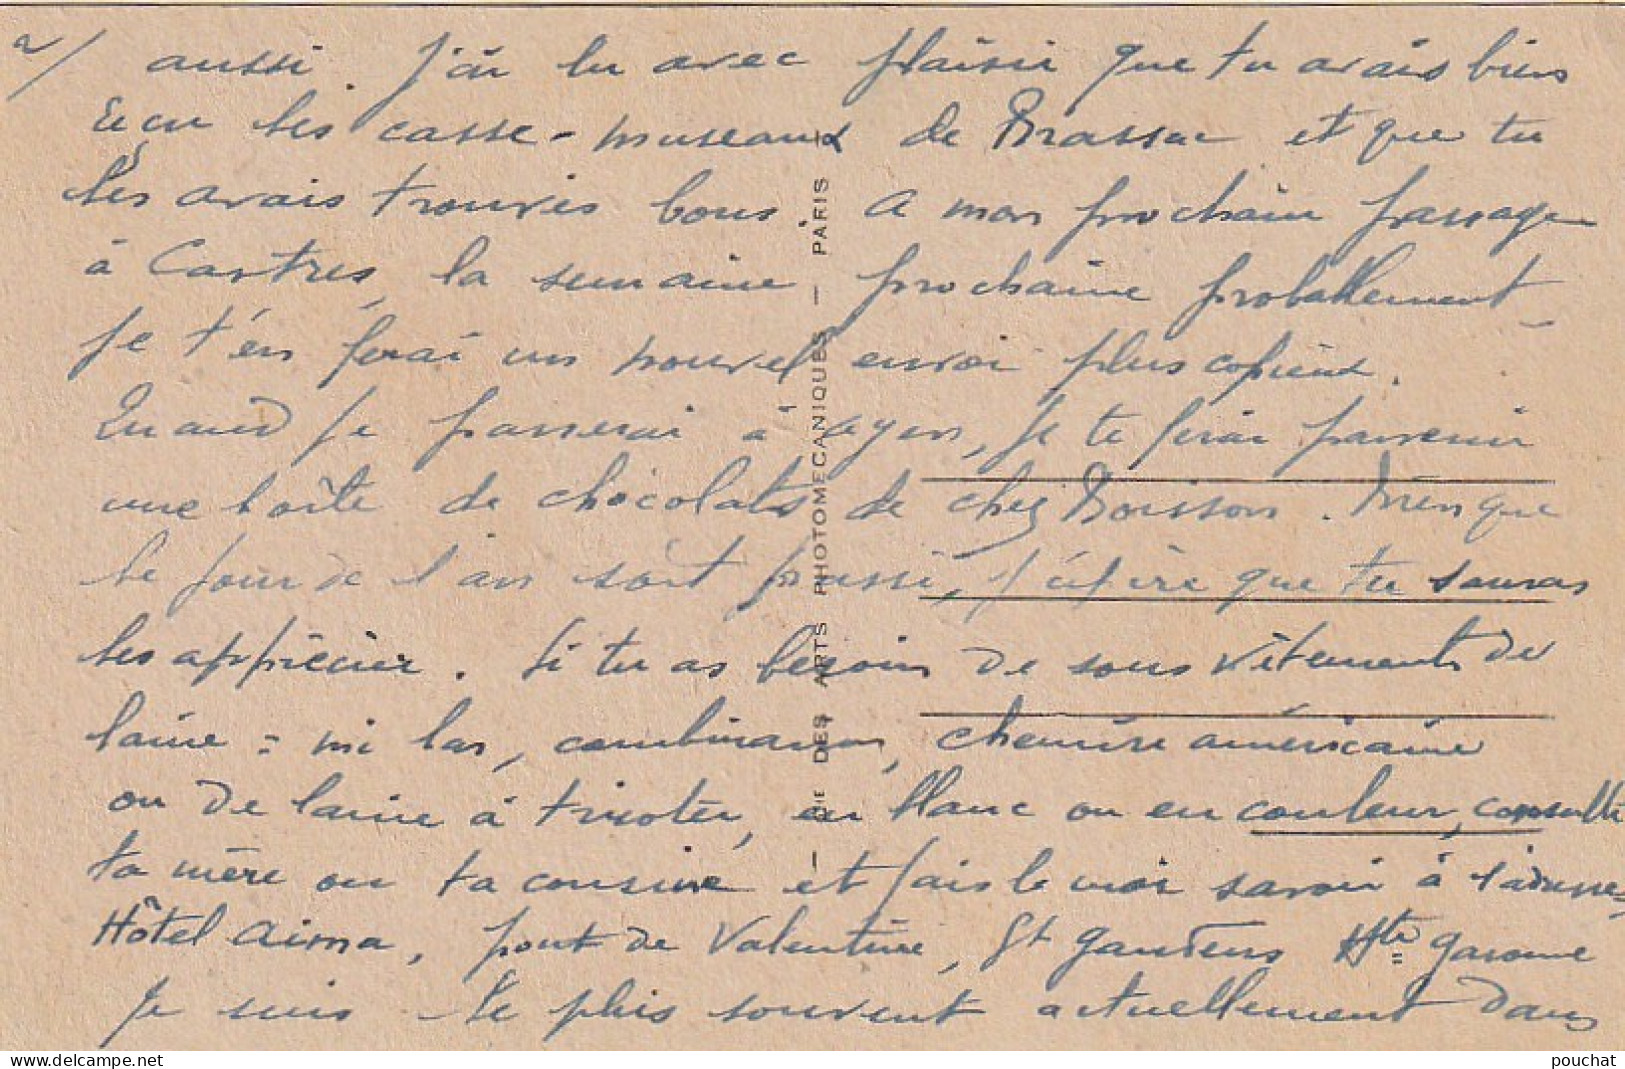 2/ aussi. J'ai lu avec plaisir que tu avais bien
reçu les casse-museaux de Brassac et que tu
les avais trouvés bons. A mon prochain passage
à Castres, la semaine prochaine probablement
je t'en ferai un nouvel envoi plus copieux.
Quand je passerai à Agen, je te ferai parvenir
une boîte de chocolats de chez Boisson. Bien que
le jour de l'an soit passé, j'espère que tu sauras
les apprécier. Si tu as besoin de sous vêtements de
laine = mi bas, combinaison, chemise américaine
ou de laine à tricoter, en blanc ou en couleur, consulte
ta mère ou ta cousine et fais le moi savoir à l'adresse =
Hôtel Aima, pont de Valentine, St Gaudens Hte Garonne
Je suis le plus souvent actuellement dans
CIE DES ARTS PHOTOMECANIQUES — PARIS
pouchat
delcampe.net